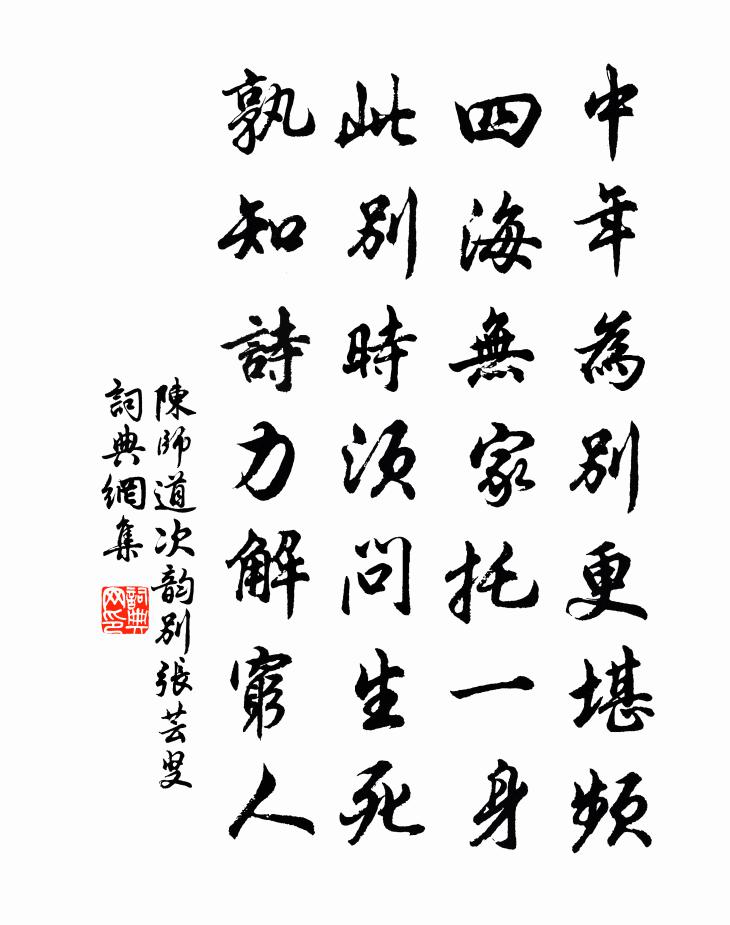 中年為别更堪頻
四海無家托一身
此别時須問生死
孰知詩力解窮人
陳師道次韵别張芸叟
詞典網集
詞典网印